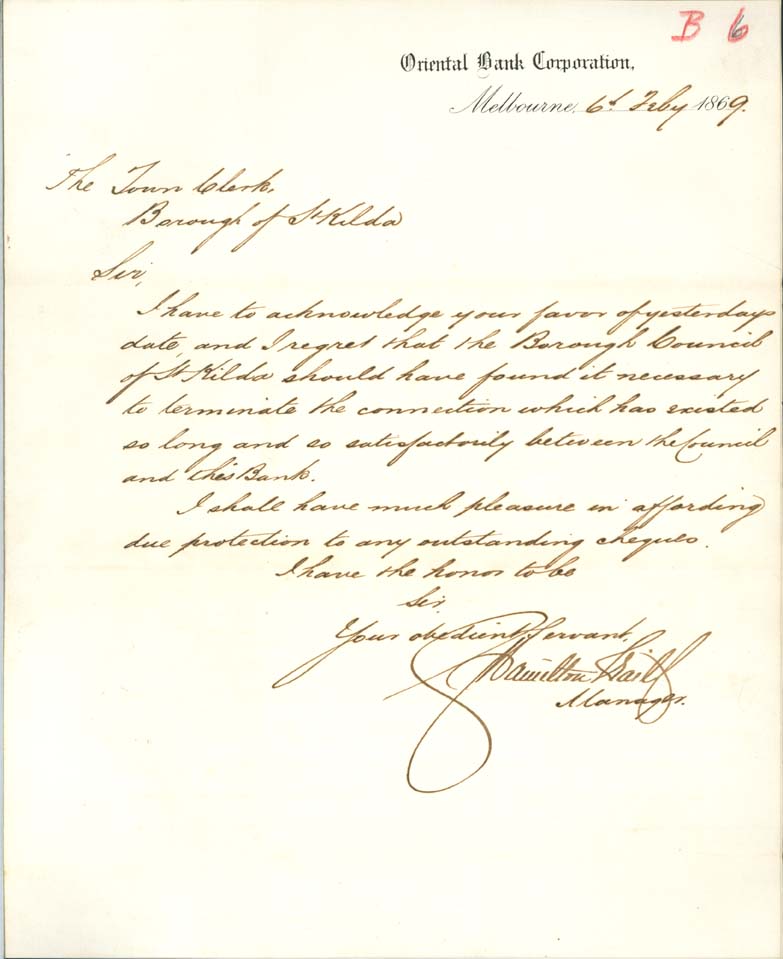 B 6
Oriental Bank Corporation,
Melbourne, 6th Feby 1869.
The Town Clerk,
Borough of St Kilda
Sir,
I have to acknowledge your favor of yesterdays
date, and I regret that the Borough Council
of St Kilda should have found it necessary
to terminate the connection which has existed
so long and so satisfactorily between the Council
and this Bank.
I shall have much pleasure in affording
due protection to any outstanding cheques.
I have the honor to be
Sir,
Your obedient Servant,
Hamilton
Manager.